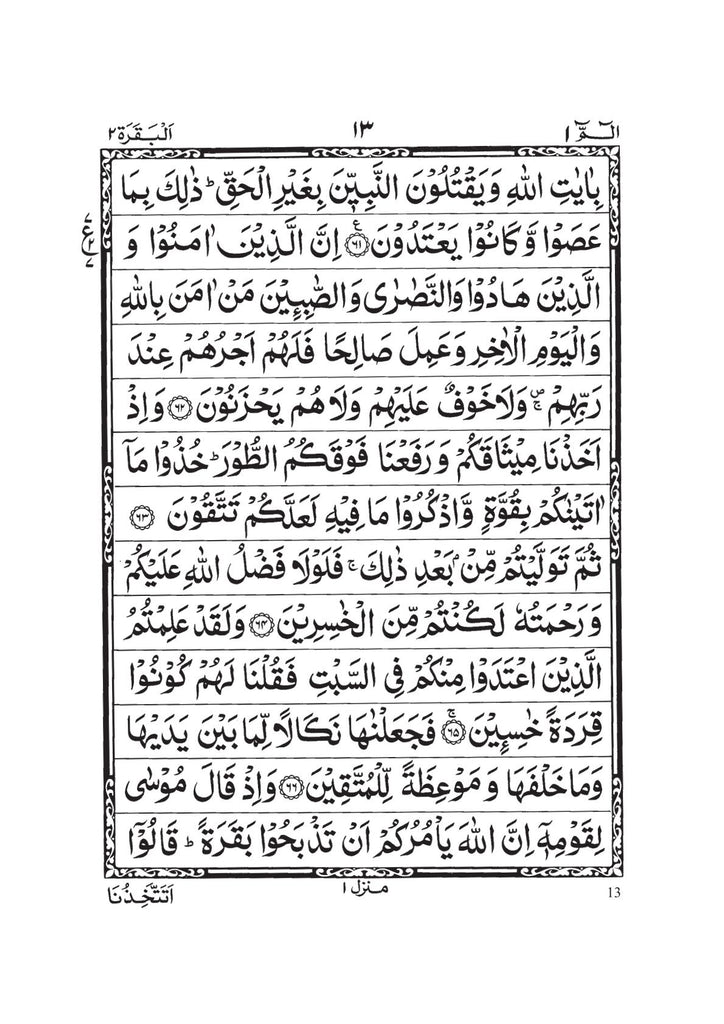 الٓمّٓ ١ ١٣ اَلْبَقَرَة ٢
بِاٰيٰتِ اللّٰهِ وَيَقْتُلُوْنَ النَّبِيّٖنَ بِغَيْرِ الْحَقِّ ؕ ذٰلِكَ بِمَا
عَصَوْا وَّ كَانُوْا يَعْتَدُوْنَ ۟ع ﴿۶۱﴾ اِنَّ الَّذِيْنَ اٰمَنُوْا وَ
الَّذِيْنَ هَادُوْا وَالنَّصٰرٰى وَالصّٰبِـِٕيْنَ مَنْ اٰمَنَ بِاللّٰهِ
وَالْيَوْمِ الْاٰخِرِ وَعَمِلَ صَالِحًا فَلَهُمْ اَجْرُهُمْ عِنْدَ
رَبِّهِمْ ۪ۚ وَلَا خَوْفٌ عَلَيْهِمْ وَلَا هُمْ يَحْزَنُوْنَ ﴿۶۲﴾ وَاِذْ
اَخَذْنَا مِيْثَاقَكُمْ وَ رَفَعْنَا فَوْقَكُمُ الطُّوْرَ ؕ خُذُوْا مَاۤ
اٰتَيْنٰكُمْ بِقُوَّةٍ وَّاذْكُرُوْا مَا فِيْهِ لَعَلَّكُمْ تَتَّقُوْنَ ﴿۶۳﴾
ثُمَّ تَوَلَّيْتُمْ مِّنْۢ بَعْدِ ذٰلِكَ ۚ فَلَوْلَا فَضْلُ اللّٰهِ عَلَيْكُمْ
وَ رَحْمَتُهٗ لَكُنْتُمْ مِّنَ الْخٰسِرِيْنَ ﴿۶۴﴾ وَلَقَدْ عَلِمْتُمُ
الَّذِيْنَ اعْتَدَوْا مِنْكُمْ فِي السَّبْتِ فَقُلْنَا لَهُمْ كُوْنُوْا
قِرَدَةً خٰسِـِٕيْنَ ۚ ﴿۶۵﴾ فَجَعَلْنٰهَا نَكَالًا لِّمَا بَيْنَ يَدَيْهَا
وَمَا خَلْفَهَا وَ مَوْعِظَةً لِّلْمُتَّقِيْنَ ﴿۶۶﴾ وَاِذْ قَالَ مُوْسٰى
لِقَوْمِهٖۤ اِنَّ اللّٰهَ يَاْمُرُكُمْ اَنْ تَذْبَحُوْا بَقَرَةً ؕ قَالُوْۤا
اَتَتَّخِذُنَا منزل ١ 13